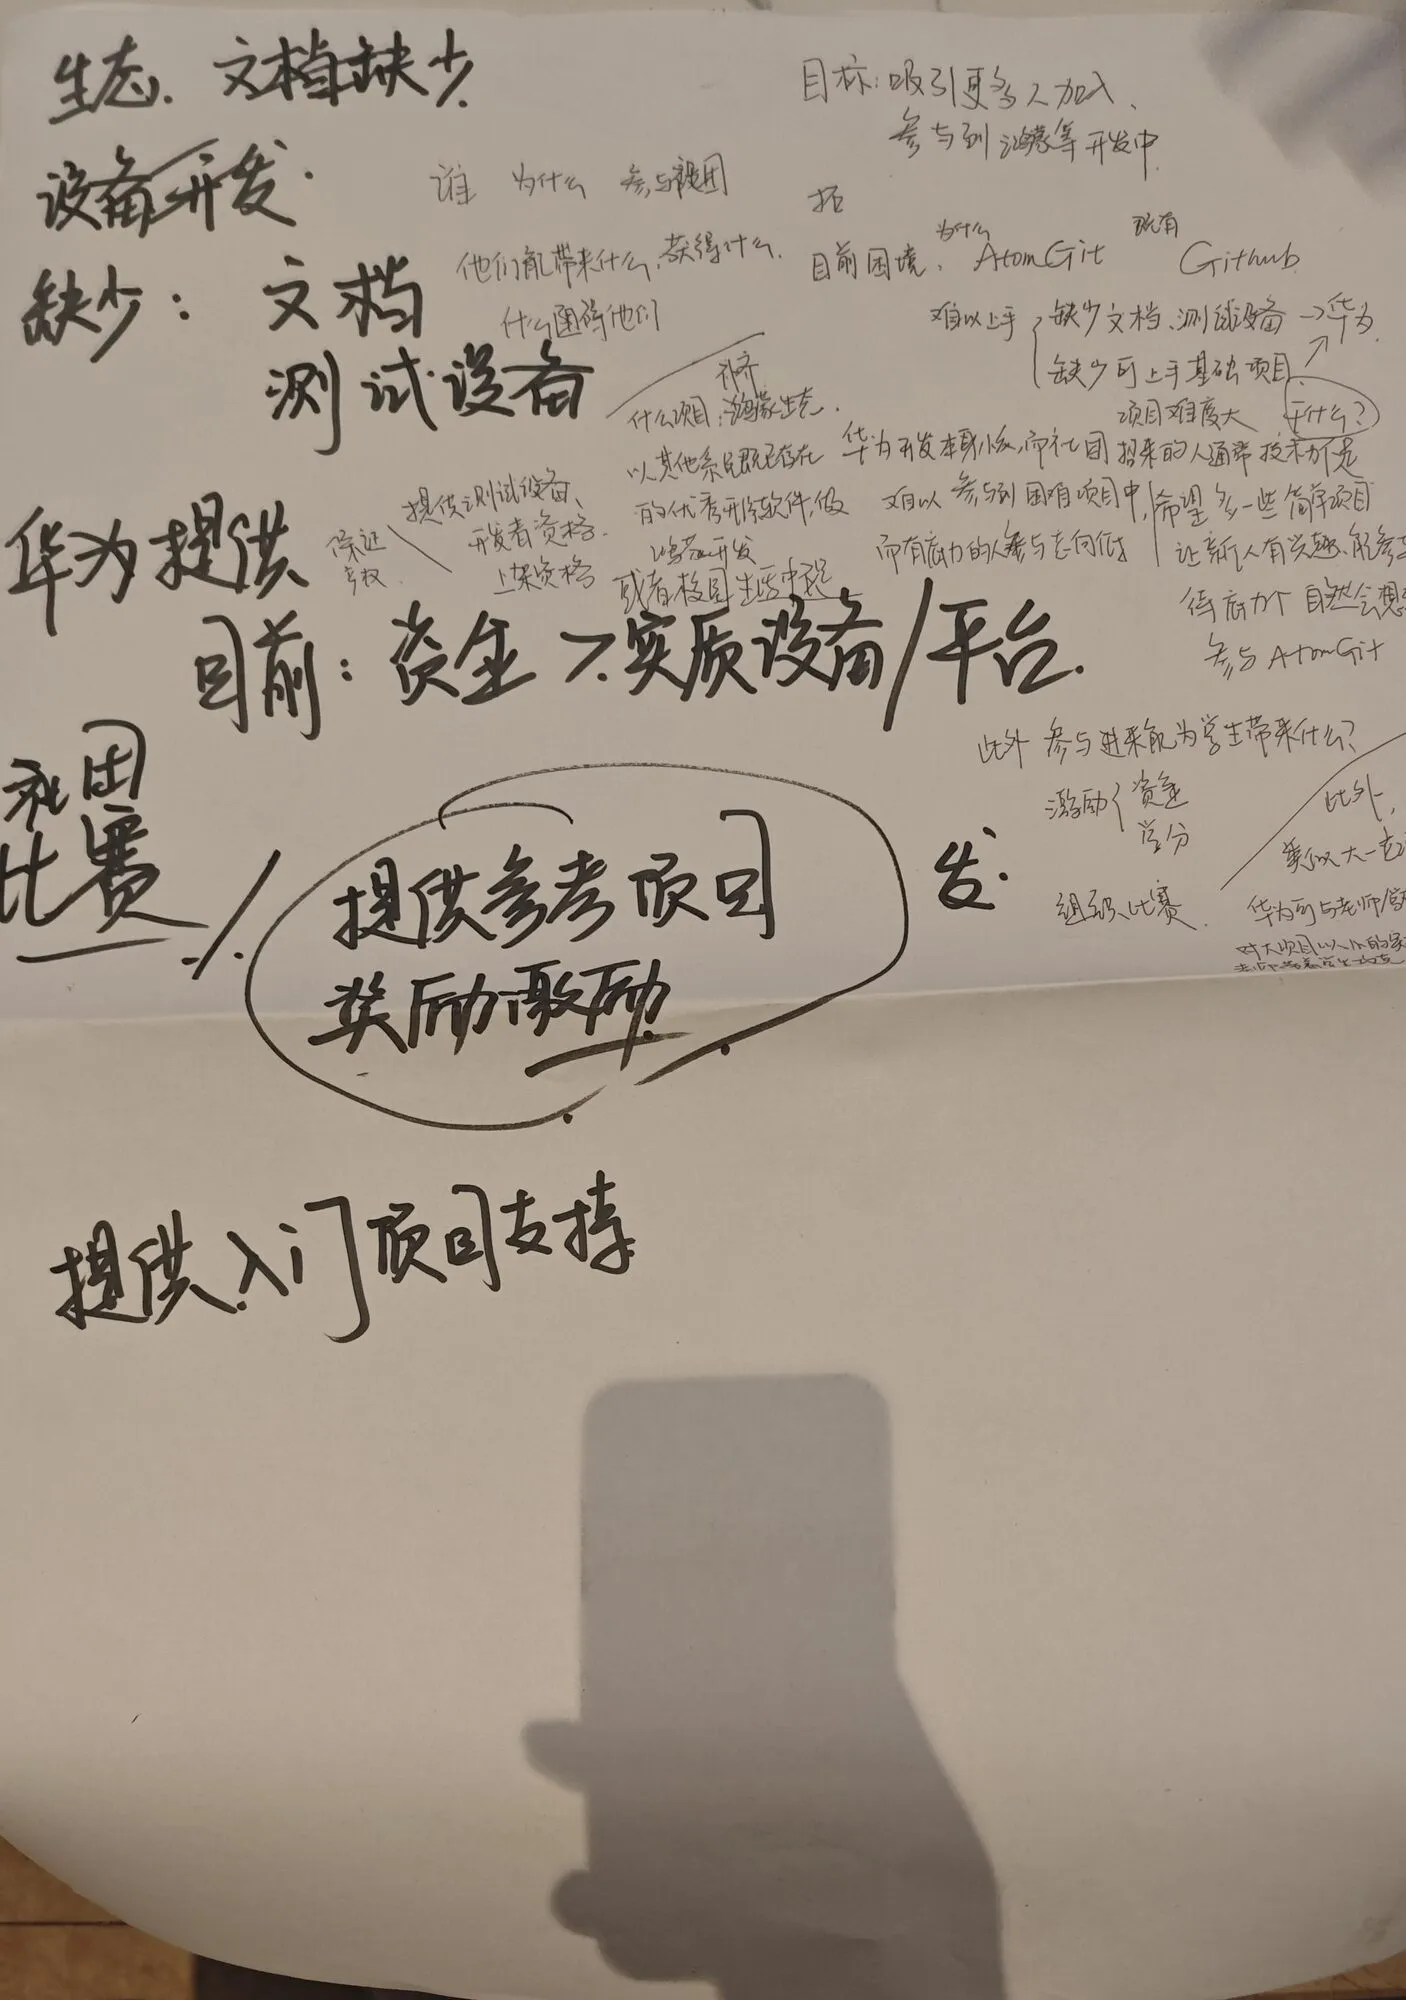 生态. 文档缺少.
设备开发.
缺少: 文档
测试设备
华为提供
目前: 资金 > 实质设备/平台.
社团
比赛
提供参考项目
奖励激励.
发.
提供入门项目支持
谁 为什么 参与
他们能带来什么, 获得什么.
什么困碍他们
补齐
什么项目: 鸿蒙生态.
以其他系统既已存在
的优秀开源软件,做
鸿蒙开发
或者校园生活中
提供测试设备、
开发者资格、
上架资格
保证
目标: 吸引更多人加入、
参与到鸿蒙等开发中.
目前困境、为什么 AtomGit 既有 Github.
难以上手 { 缺少文档、测试设备 → 华为.
缺少可上手基础项目.
项目难度大
干什么?
华为开发本身 ,而社团招来的人通常技术不足
难以参与到困难项目中,
而有能力的人参与志向低
希望多一些简单项目
让新人有兴趣、能参与
自然会想
参与 AtomGit
此外 参与进来能为学生带来什么?
激励 { 资金
学分
组织比赛.
此外,
类似大一
华为可与老师
对大项目以